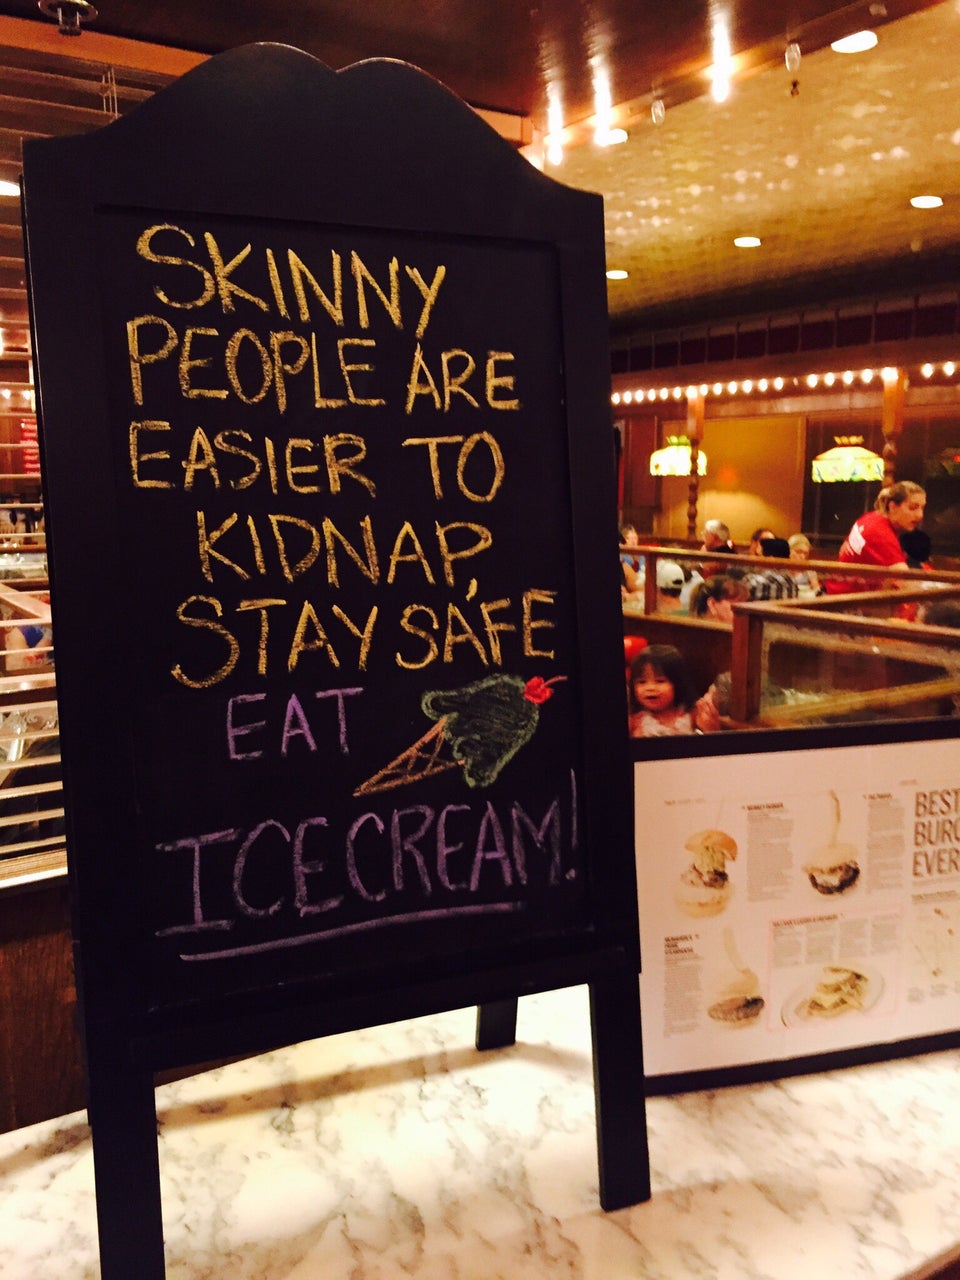 SKINNY
PEOPLE ARE
EASIER TO
KIDNAP,
STAY SAFE
EAT
ICE CREAM!
BEST
BURG
EVER